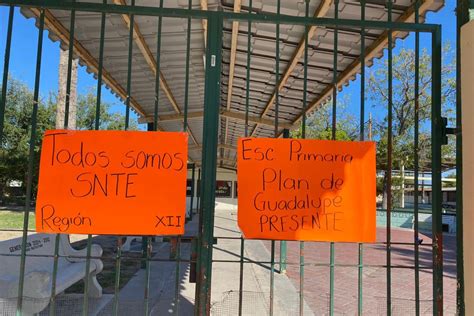 Todos somos
SNTE
Región XII
Esc Primaria
Plan de
Guadalupe
PRESENTE